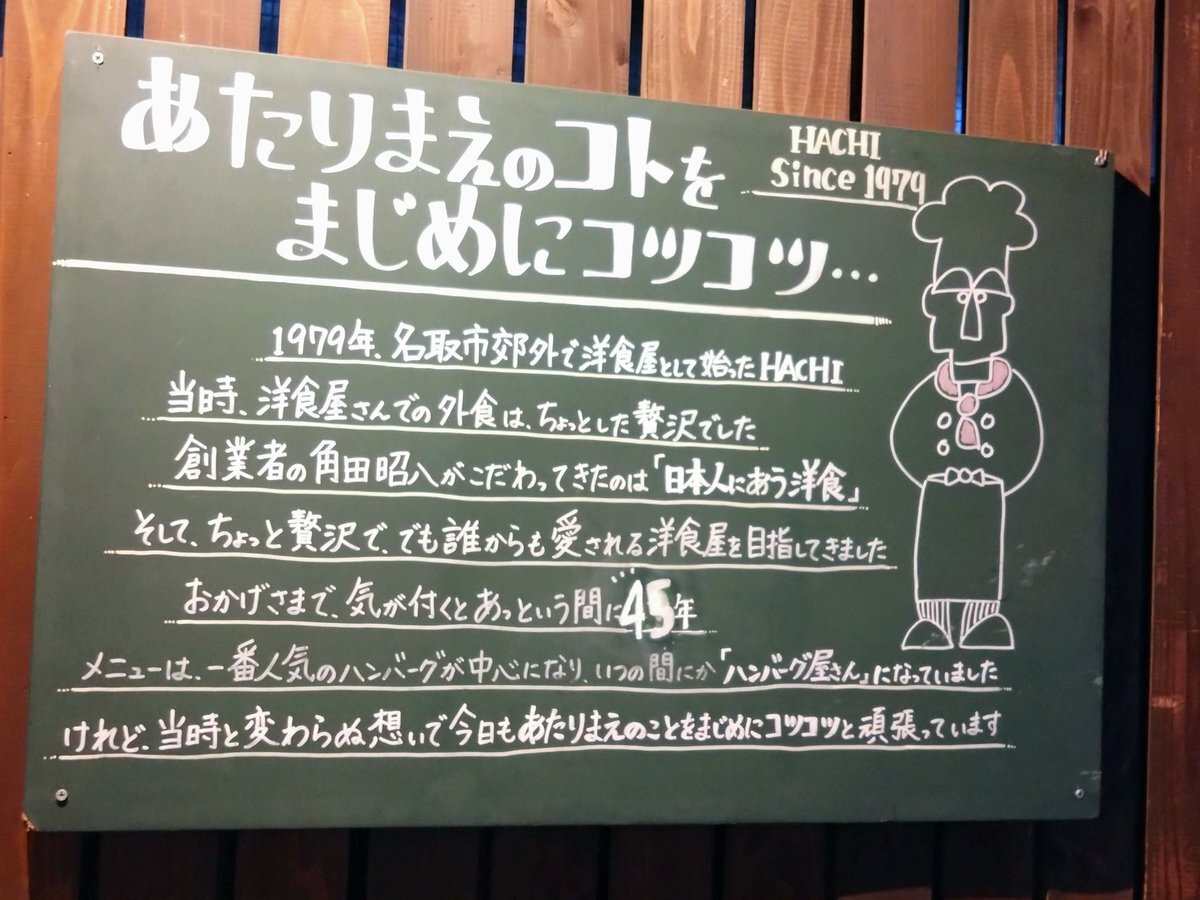 あたりまえのコトを
まじめにコツコツ…
HACHI
Since 1979
1979年、名取市郊外で洋食屋として始ったHACHI
当時、洋食屋さんでの外食は、ちょっとした贅沢でした
創業者の角田昭八がこだわってきたのは「日本人にあう洋食」
そして、ちょっと贅沢で、でも誰からも愛される洋食屋を目指してきました
おかげさまで、気が付くとあっという間に45年
メニューは、一番人気のハンバーグが中心になり、いつの間にか「ハンバーグ屋さん」になっていました
けれど、当時と変わらぬ想いで今日もあたりまえのことをまじめにコツコツと頑張っています